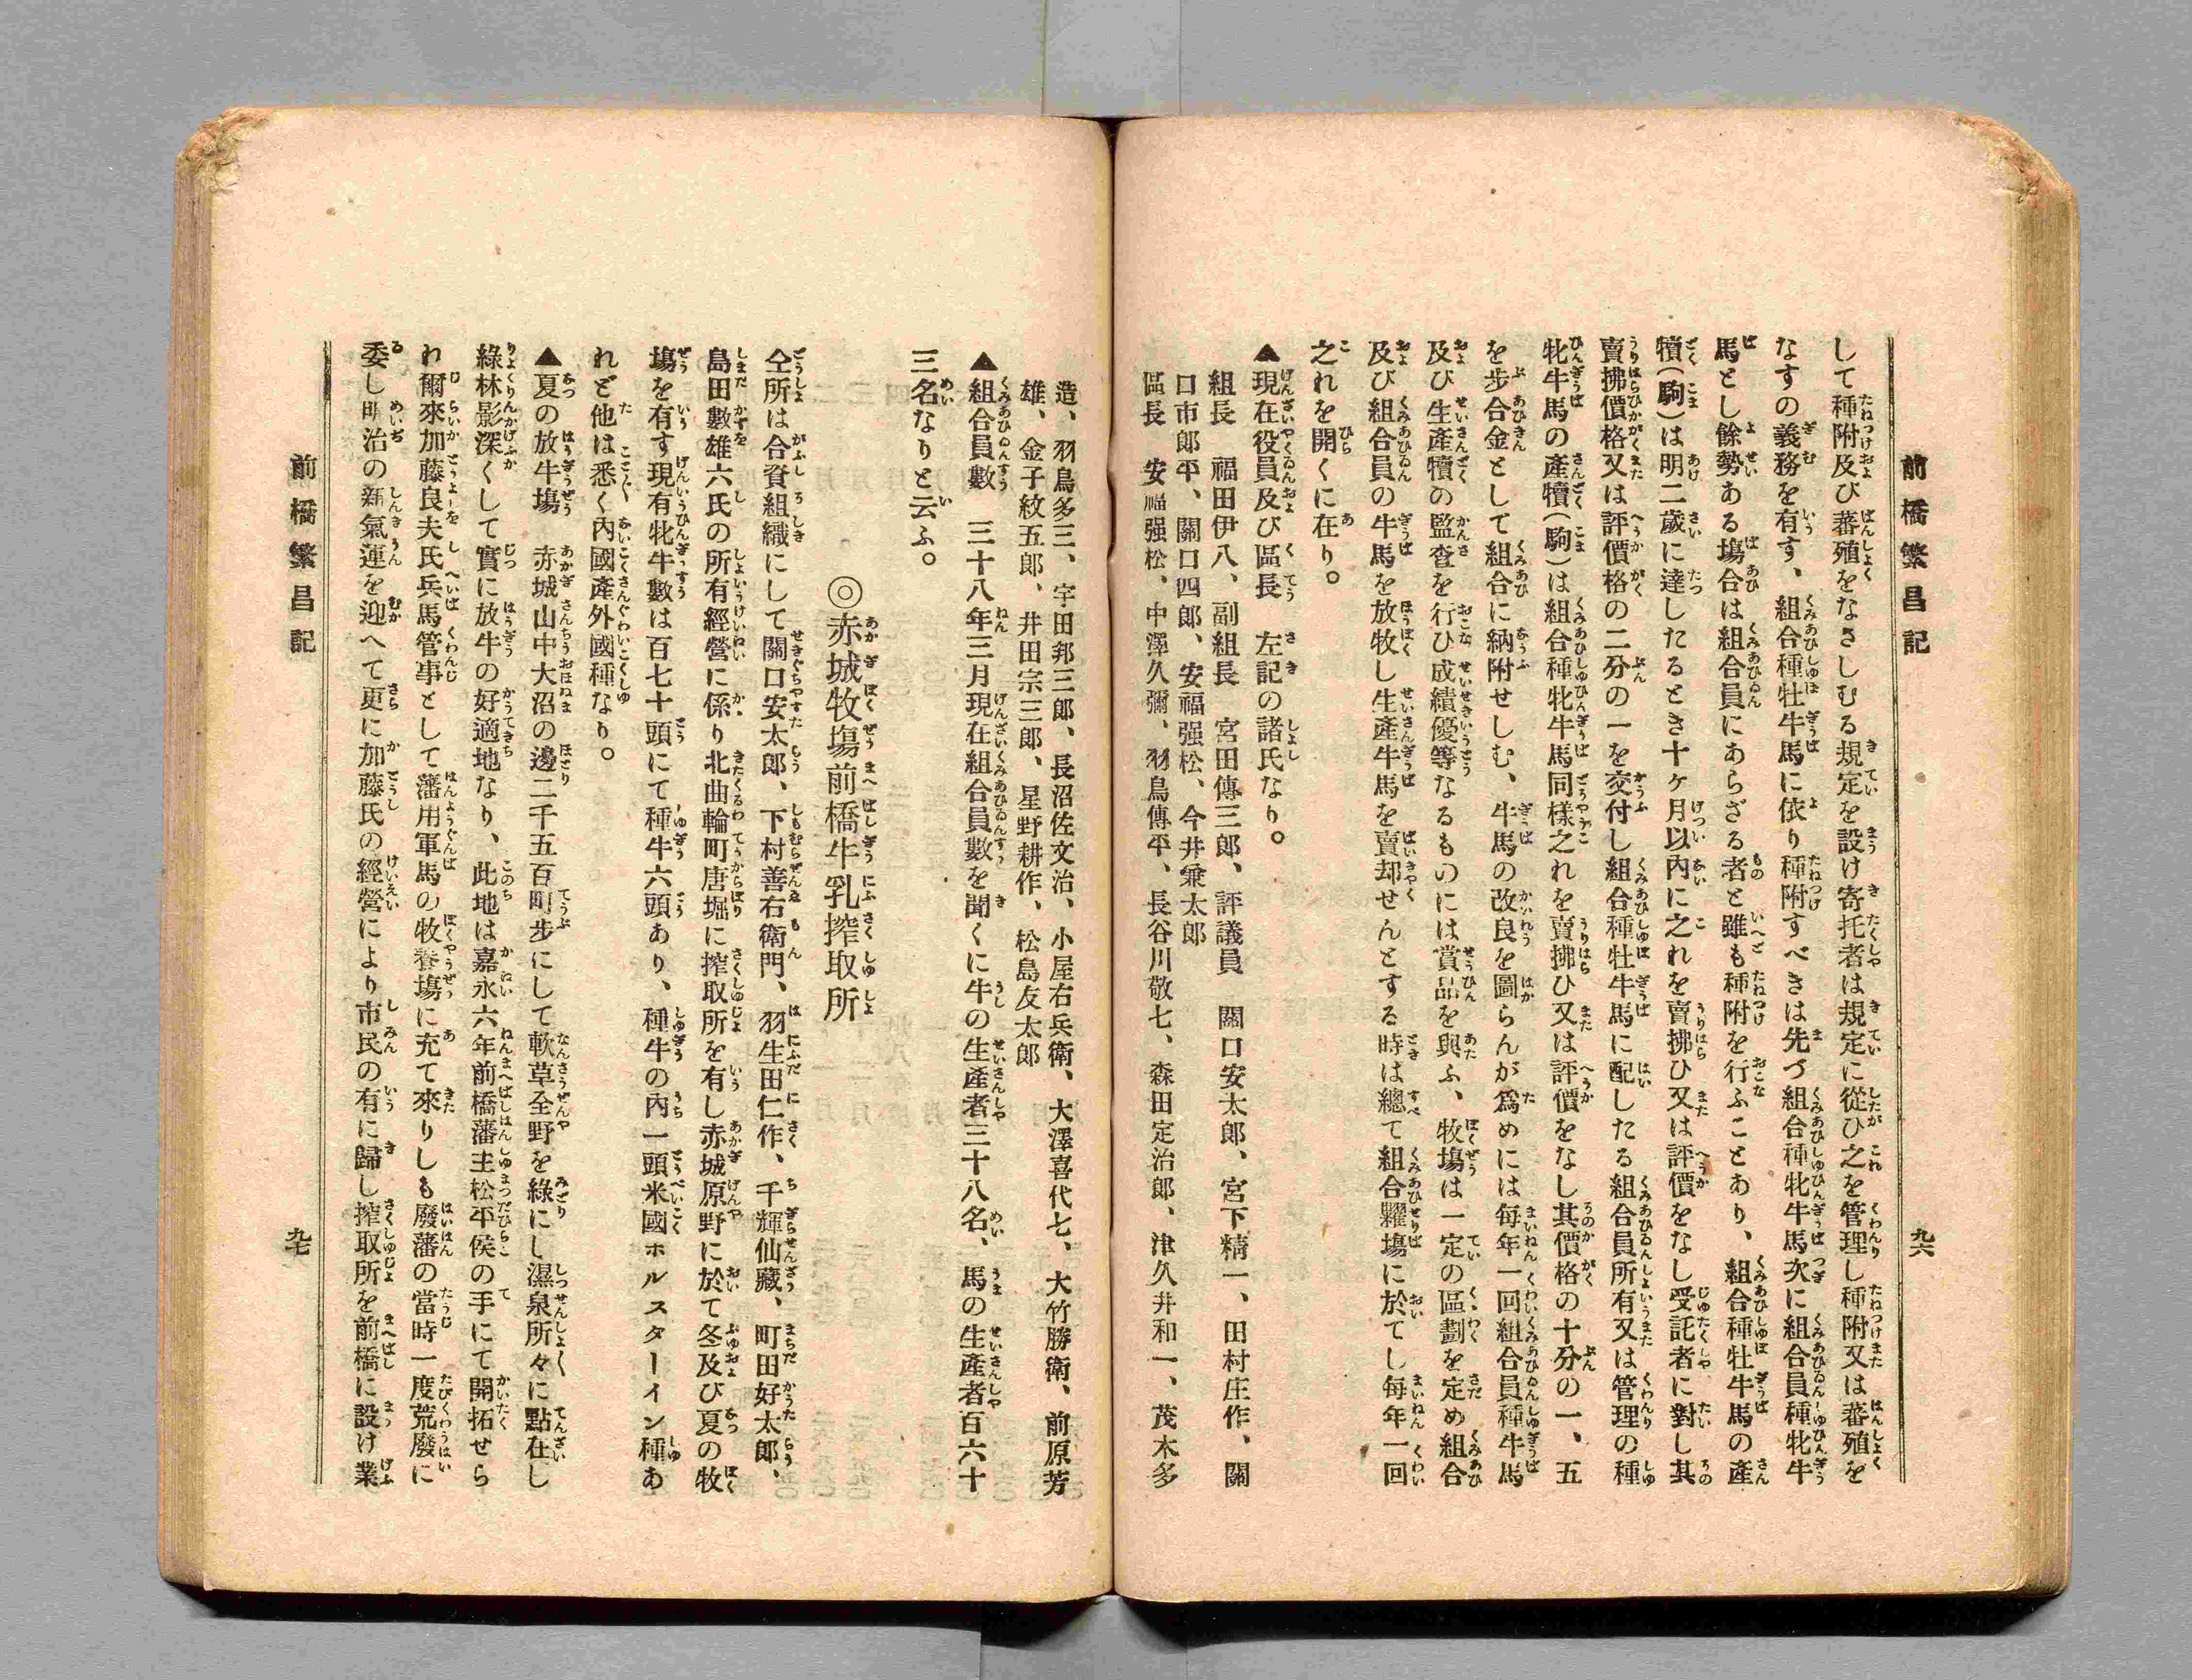 前橋繁昌記
九六
して種附及び蕃殖をなさしむる規定を設け寄托者は規定に從ひ之を管理し種附又は蕃殖を
なすの義務を有す、組合種牡牛馬に依り種附すべきは先づ組合種牝牛馬次に組合員種牝牛
馬とし餘勢ある塲合は組合員にあらざる者と雖も種附を行ふことあり、組合種牡牛馬の產
犢(駒)は明二歲に達したるとき十ヶ月以內に之れを賣拂ひ又は評價をなし受託者に對し其
賣拂價格又は評價格の二分の一を交付し組合種牡牛馬に配したる組合員所有又は管理の種
牝牛馬の產犢(駒)は組合種牝牛馬同樣之れを賣拂ひ又は評價をなし其價格の十分の一、五
を步合金として組合に納附せしむ、牛馬の改良を圖らんが爲めには每年一回組合員種牛馬
及び生產犢の監查を行ひ成績優等なるものには賞品を與ふ、牧塲は一定の區劃を定め組合
及び組合員の牛馬を放牧し生產牛馬を賣却せんとする時は總て組合糶塲に於てし每年一回
之れを開くに在り。
▲現在役員及び區長　左記の諸氏なり。
組長　福田伊八、副組長　宮田傳三郎、評議員　關口安太郎、宮下精一、田村庄作、關
口市郎平、關口四郎、安福强松、今井乗太郎
區長　安福强松、中澤久彌、羽鳥傳平、長谷川敬七、森田定治郎、津久井和一、茂木多
造、羽鳥多三、宇田邦三郎、長沼佐文治、小屋右兵衛、大澤喜代七、大竹勝衛、前原芳
雄、金子紋五郎、井田宗三郎、星野耕作、松島友太郎
▲組合員數　三十八年三月現在組合員數を聞くに牛の生產者三十八名、馬の生產者百六十
三名なりと云ふ。
◎赤城牧塲前橋牛乳搾取所
仝所は合資組織にして關口安太郎、下村善右衛門、羽生田仁作、千輝仙藏、町田好太郎、
島田數雄六氏の所有經營に係り北曲輪町唐堀に搾取所を有し赤城原野に於て冬及び夏の牧
塲を有す現有牝牛數は百七十頭にて種牛六頭あり、種牛の內一頭米國ホルスターイン種あ
れど他は悉く內國產外國種なり。
▲夏の放牛塲　赤城山中大沼の邊二千五百町步にして軟草全野を綠にし濕泉所々に點在し
綠林影深くして實に放牛の好適地なり、此地は嘉永六年前橋藩主松平侯の手にて開拓せら
れ爾來加藤良夫氏兵馬管事として藩用軍馬の牧養塲に充て來りしも廢藩の當時一度荒廢に
委し明治の新氣運を迎へて更に加藤氏の經營により市民の有に歸し搾取所を前橋に設け業
前橋繁昌記
九七